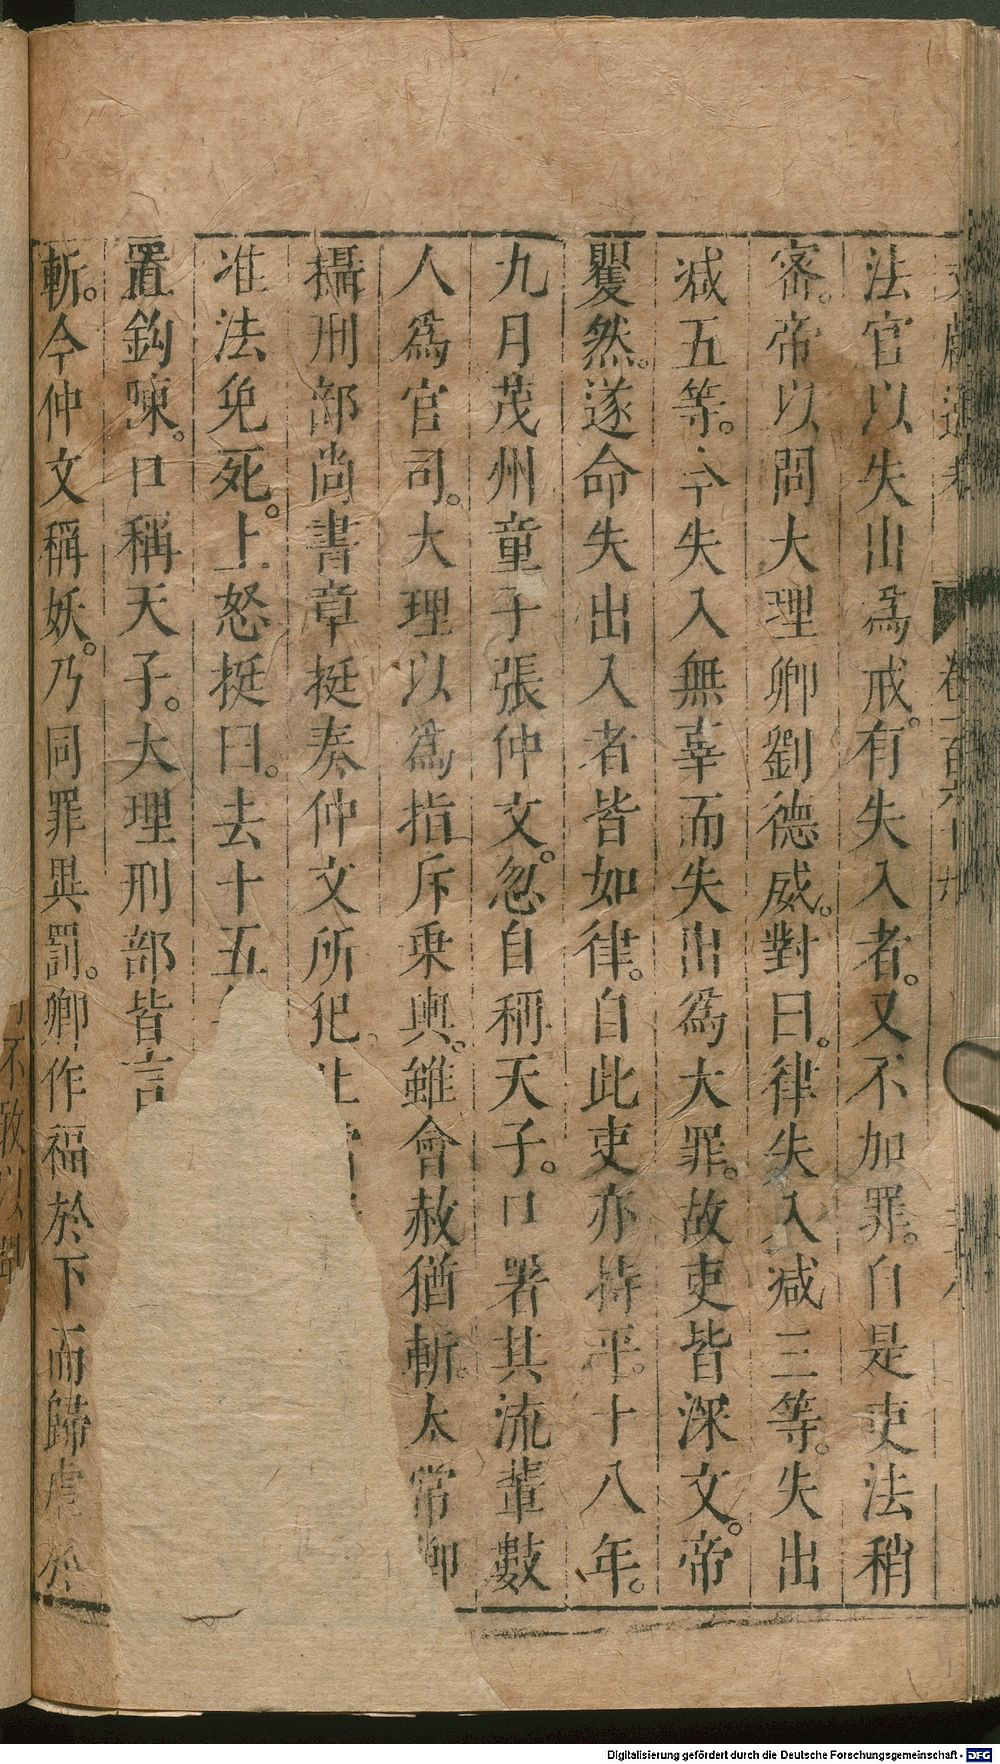 法官以失出爲戒。有失入者。又不加罪。自是吏法稍
密。帝以問大理卿劉德威。對曰。律失入减三等。失出
减五等。今失入無辜而失出爲大罪。故吏皆深文。帝
矍然。遂命失出入者皆如律。自此吏亦持平。十八年。
九月茂州童子張仲文。忽自稱天子。口署其流輩數
人爲官司。大理以爲指斥乗輿。雖會赦猶斬。太常卿
攝刑部尚書韋挺奏仲文所犯
准法免死。上怒挺曰。去十五
置鈎陳。口稱天子。大理刑部皆言
斬。今仲文稱妖。乃同罪異罰。卿作福於下而歸虐於
不敢以
Digitalisierung gefördert durch die Deutsche Forschungsgemeinschaft - DFG